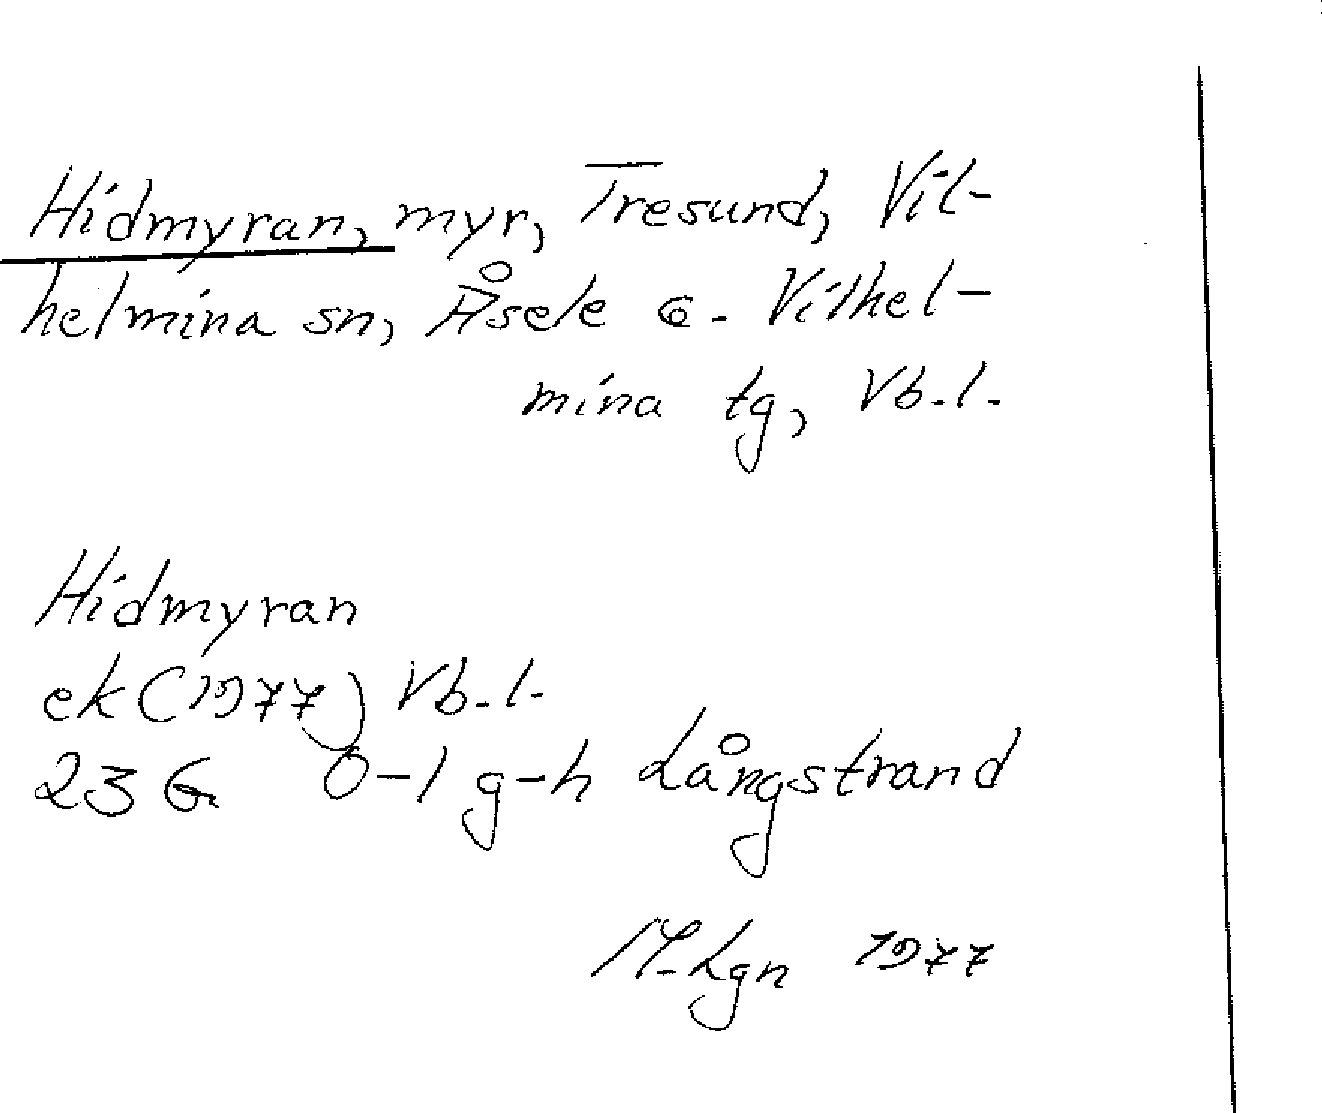 Hidmyran, myr, Tresund, Vil-
helmina sn, Åsele G. Vilhel-
mina tg, Vb.l.
Hidmyran
ek (1977) Vb.l.
23 G 0-1 g-h Långstrand
M.Lgn 1977